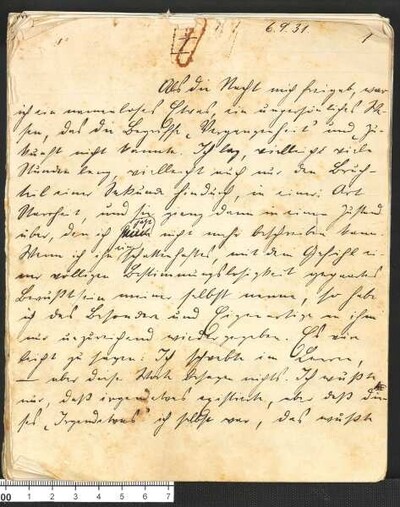 6.9.31
1
Als die Nacht mich freigab, war
ich ein namenloses Etwas, ein unpersönliches We-
sen, das die Begriffe „Vergangenheit“ und „Zu-
kunft“ nicht kannte. Ich lag, vielleicht viele
Stunden lang, vielleicht auch nur den Bruch-
teil einer Sekunde hindurch, in einer Art
Starrheit, und sie ging dann in einen Zustand
über, den ich jetzt nicht mehr beschreiben kann.
Wenn ich ihn ein schattenhaftes, mit dem Gefühl ei-
ner völligen Bestimmungslosigkeit gepaartes
Bewußtsein meiner selbst nenne, so habe
ich das Besondere und Eigenartige an ihm
nur unzureichend wiedergegeben. Es wäre
leicht zu sagen: Ich schwebte im Leeren,
— aber diese Worte besagen nichts. Ich wußte
nur, daß irgendetwas existierte, aber daß die-
ses „Irgendetwas“ ich selbst war, das wußte
00 1 2 3 4 5 6 7